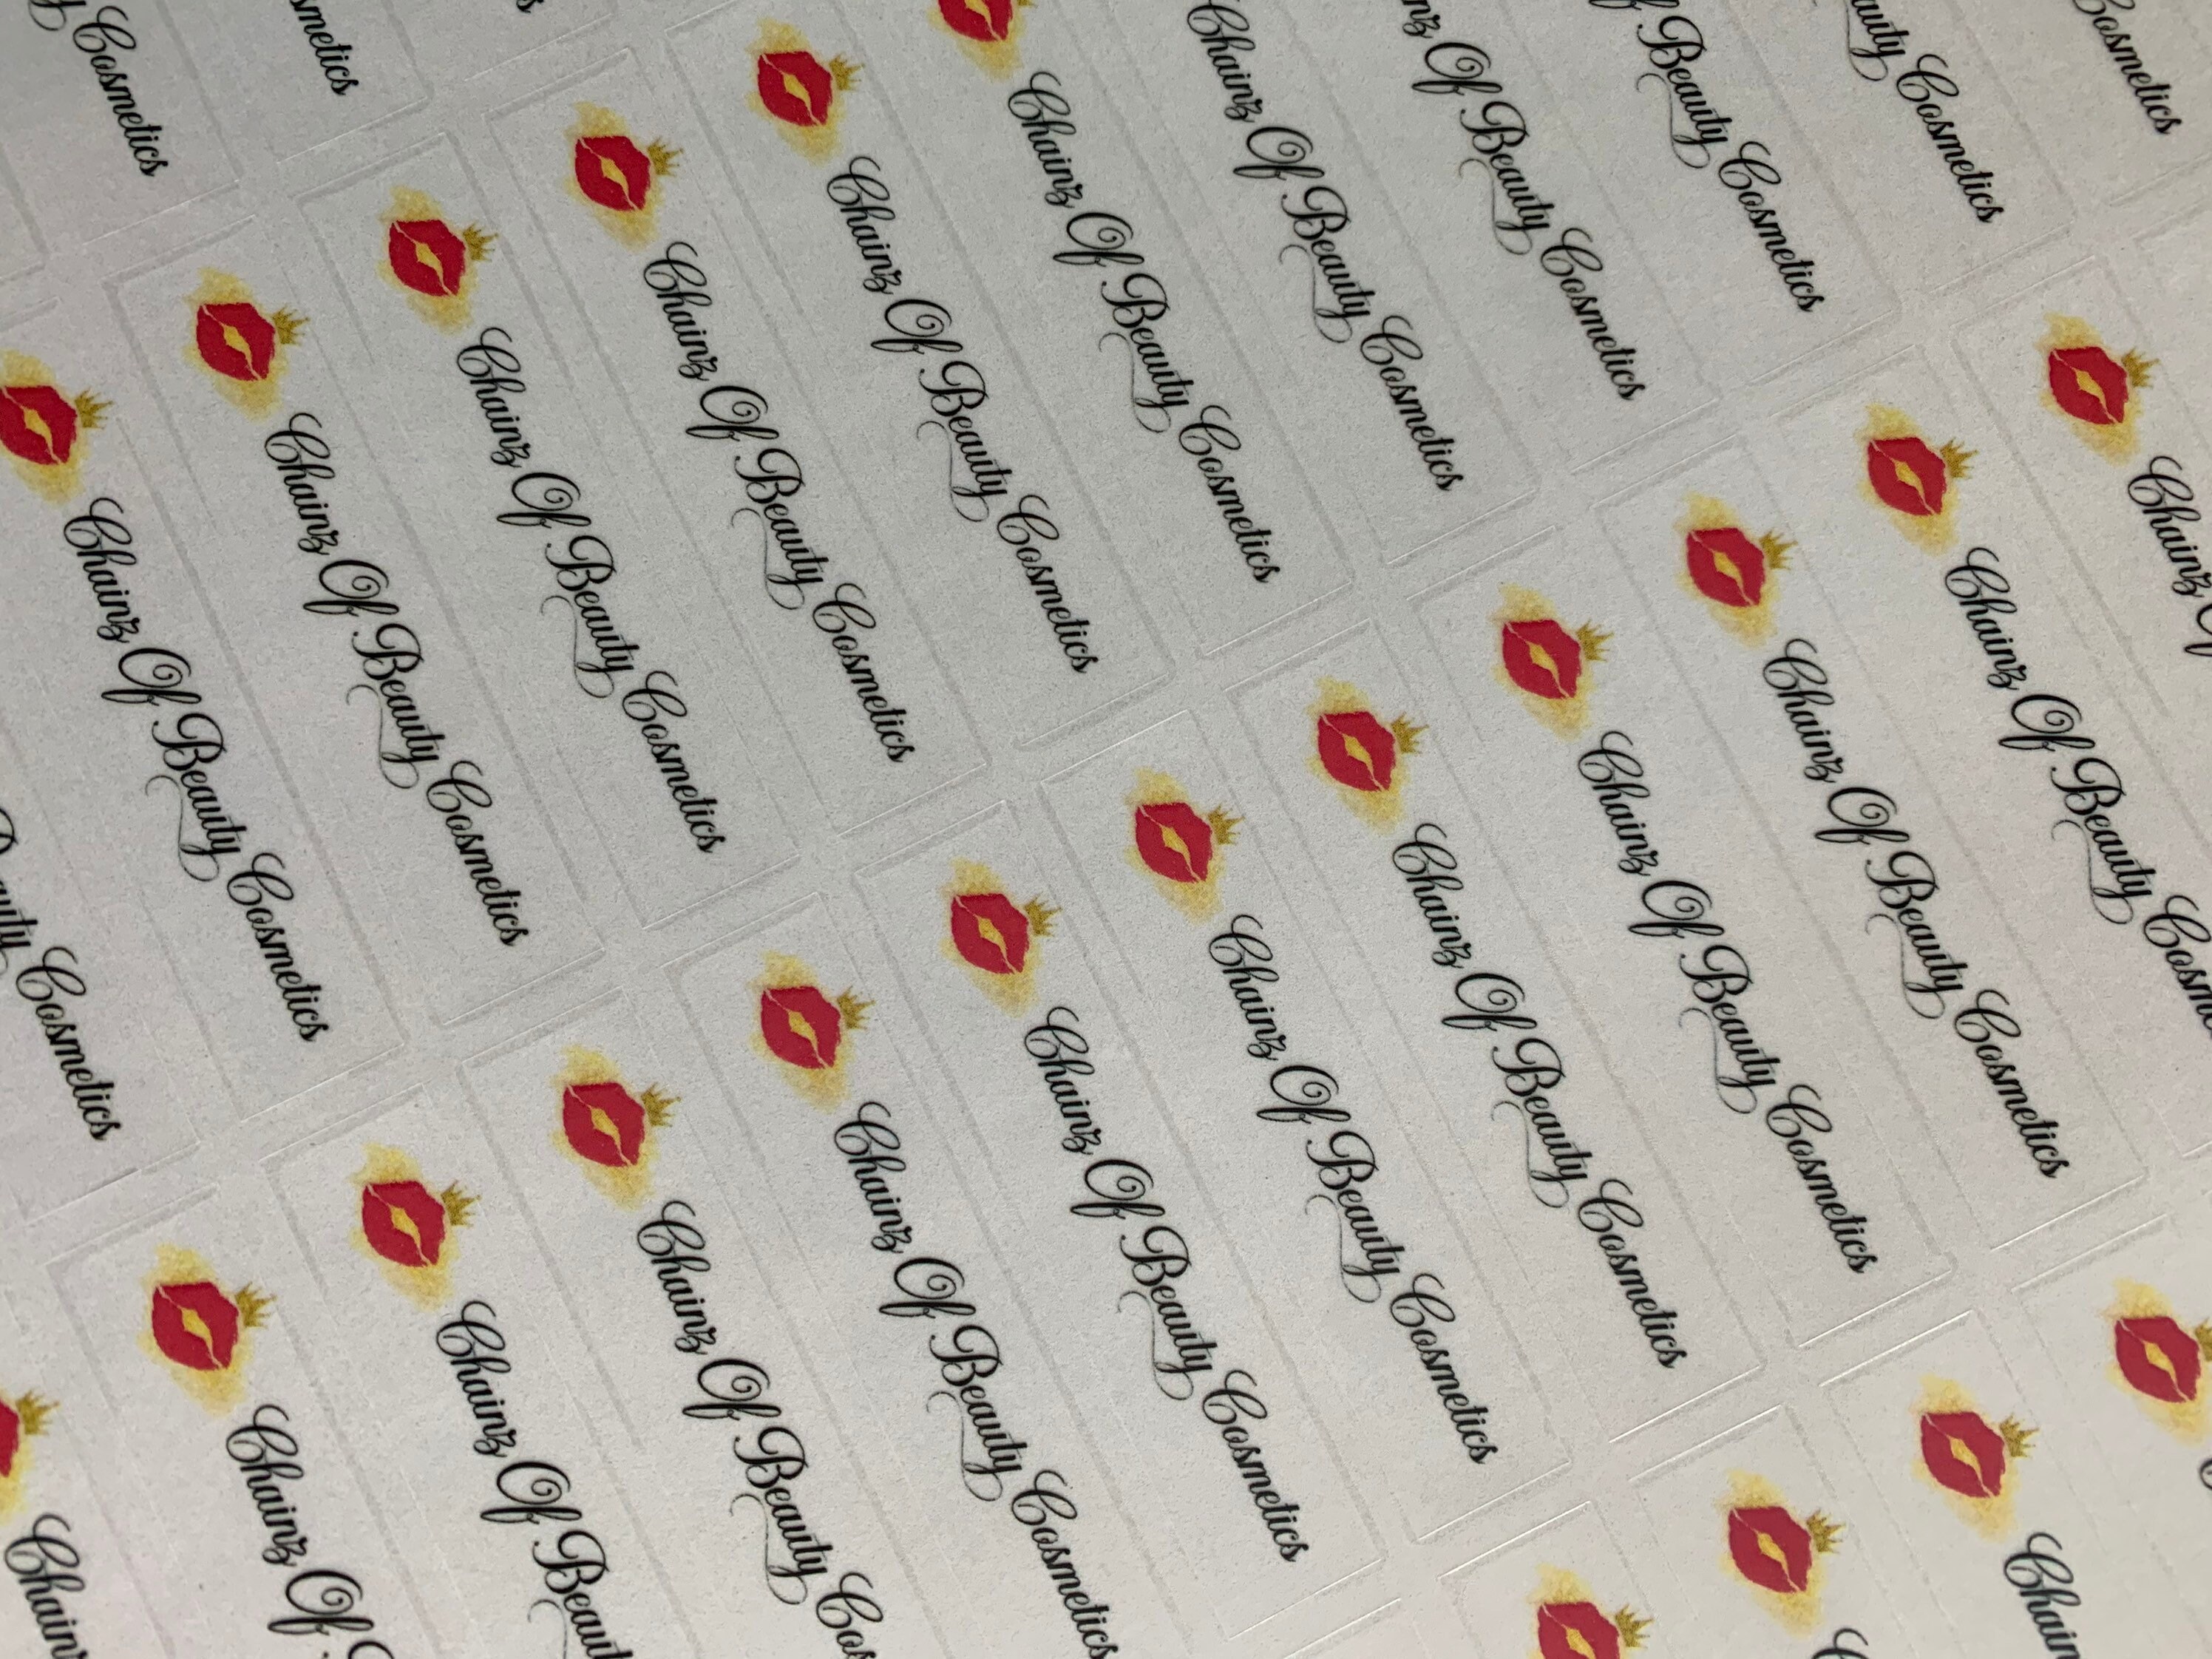 Cosmetics
smetics
Chainz Of Beauty Cosmetics
Chainz Of Beauty Cosmetics
Chainz Of Beauty Cosmetics
Chainz Of Beauty Cosmetics
Chainz Of Beauty Cosmetics
Chainz Of Beauty Cosmetics
Chainz Of Beauty Cosmetics
nz Of Beauty Cosmetics
f Beauty Cosmetics
auty Cosmetics
Cosmetics
eauty Cosmetics
Chainz
Chainz Of
Chainz Of Beaut
Chainz Of Beauty Cos
Chainz Of Beauty Cosmetics
Chainz Of Beauty Cosmetics
Chainz Of Beauty Cosmetics
Chainz Of Beauty Cosmetics
Chainz Of Beauty Cosmetics
Chainz Of Beauty Cosmetics
Chainz Of Beauty Cosm
Chainz
Chain